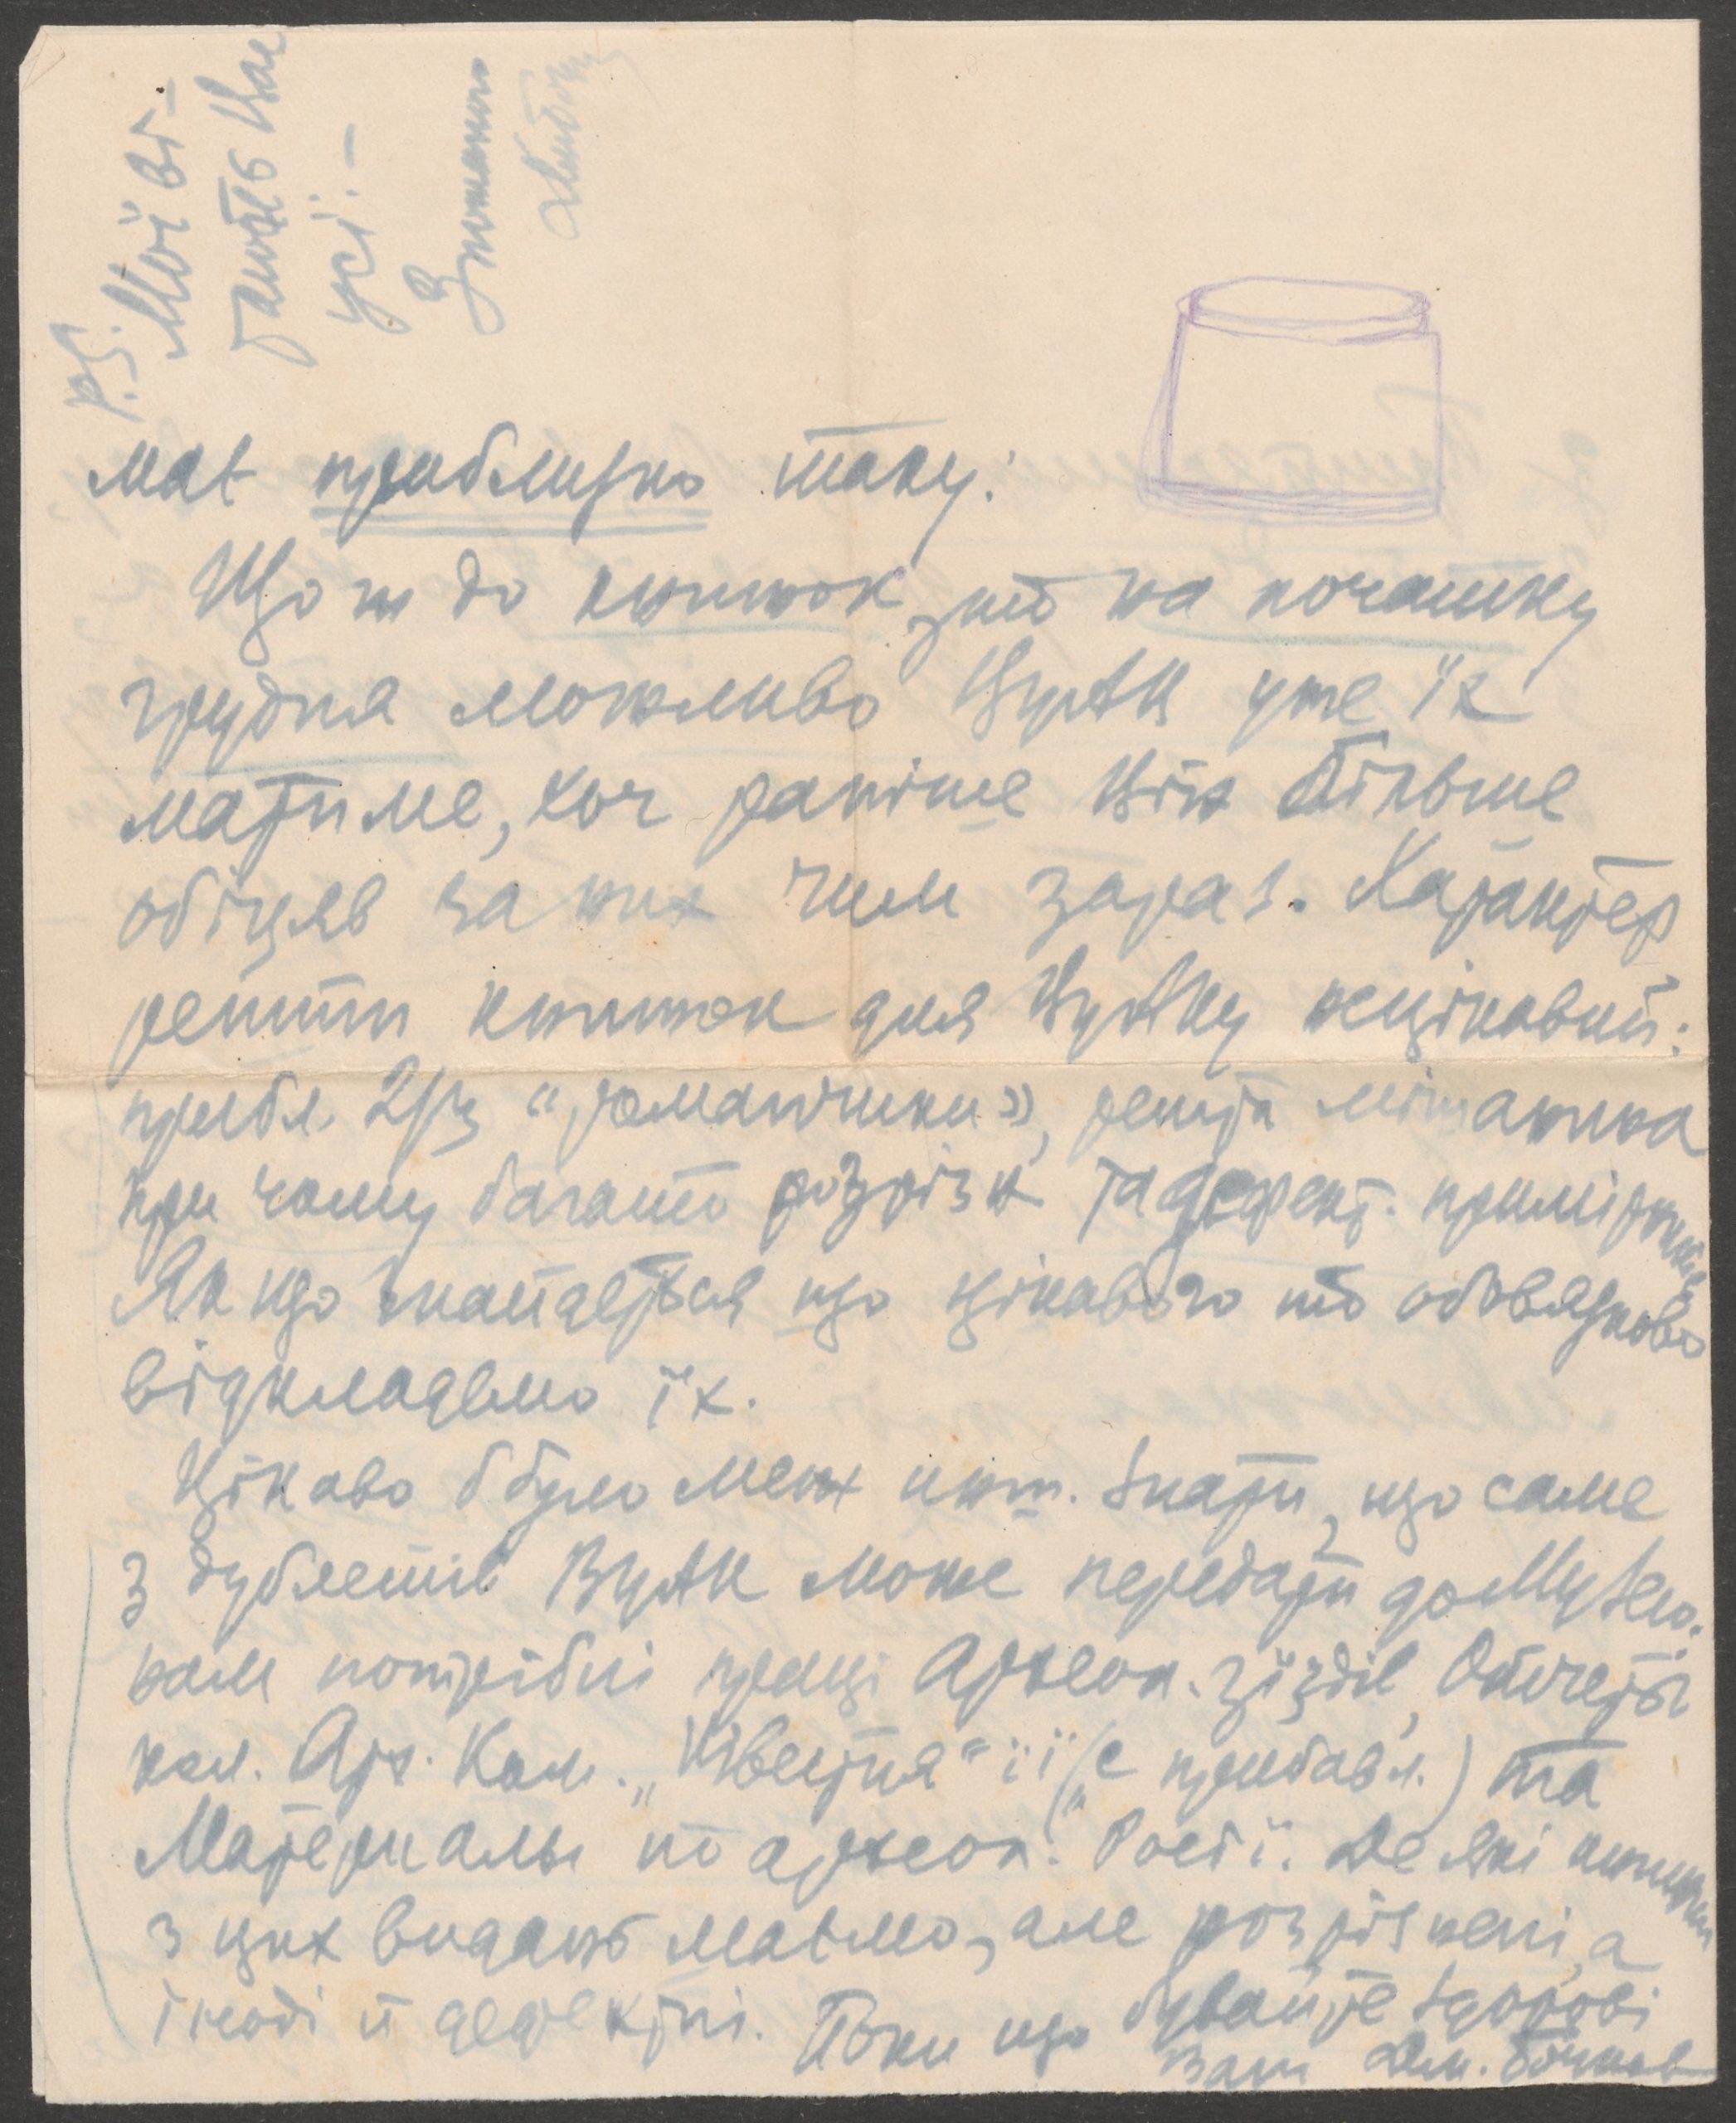 має приблизно таку:
Що ж до книжок, то на початку
грудня можливо ВУАК уже їх
матиме, хоч раніше Він більше
обіцяв за них чим зараз. Характер
решти книжок для ВУАКу нецікавий:
прибл. 2/3 "романчики", решта мішанина
при чому багато розрізн та дефект. примірників
Як що знайдеться що цікавого то обовязково
відкладемо їх.
Цікаво б було мені знати, що саме
з дублетів ВУАК може передати до Музею.
нам потрібні праці Археол. зїздів, Отчеты
Арх. Ком. „Известия" її (с прибавл.) та
"Материалы по археол." Росії. Де які книжки
з цих видань маємо, але розрізнені, а
іноді й дефектні. Поки що бувайте здорові
Ваш Дм.
P.S.
Мої ві-
тають Вас
усі. –
З пошаною